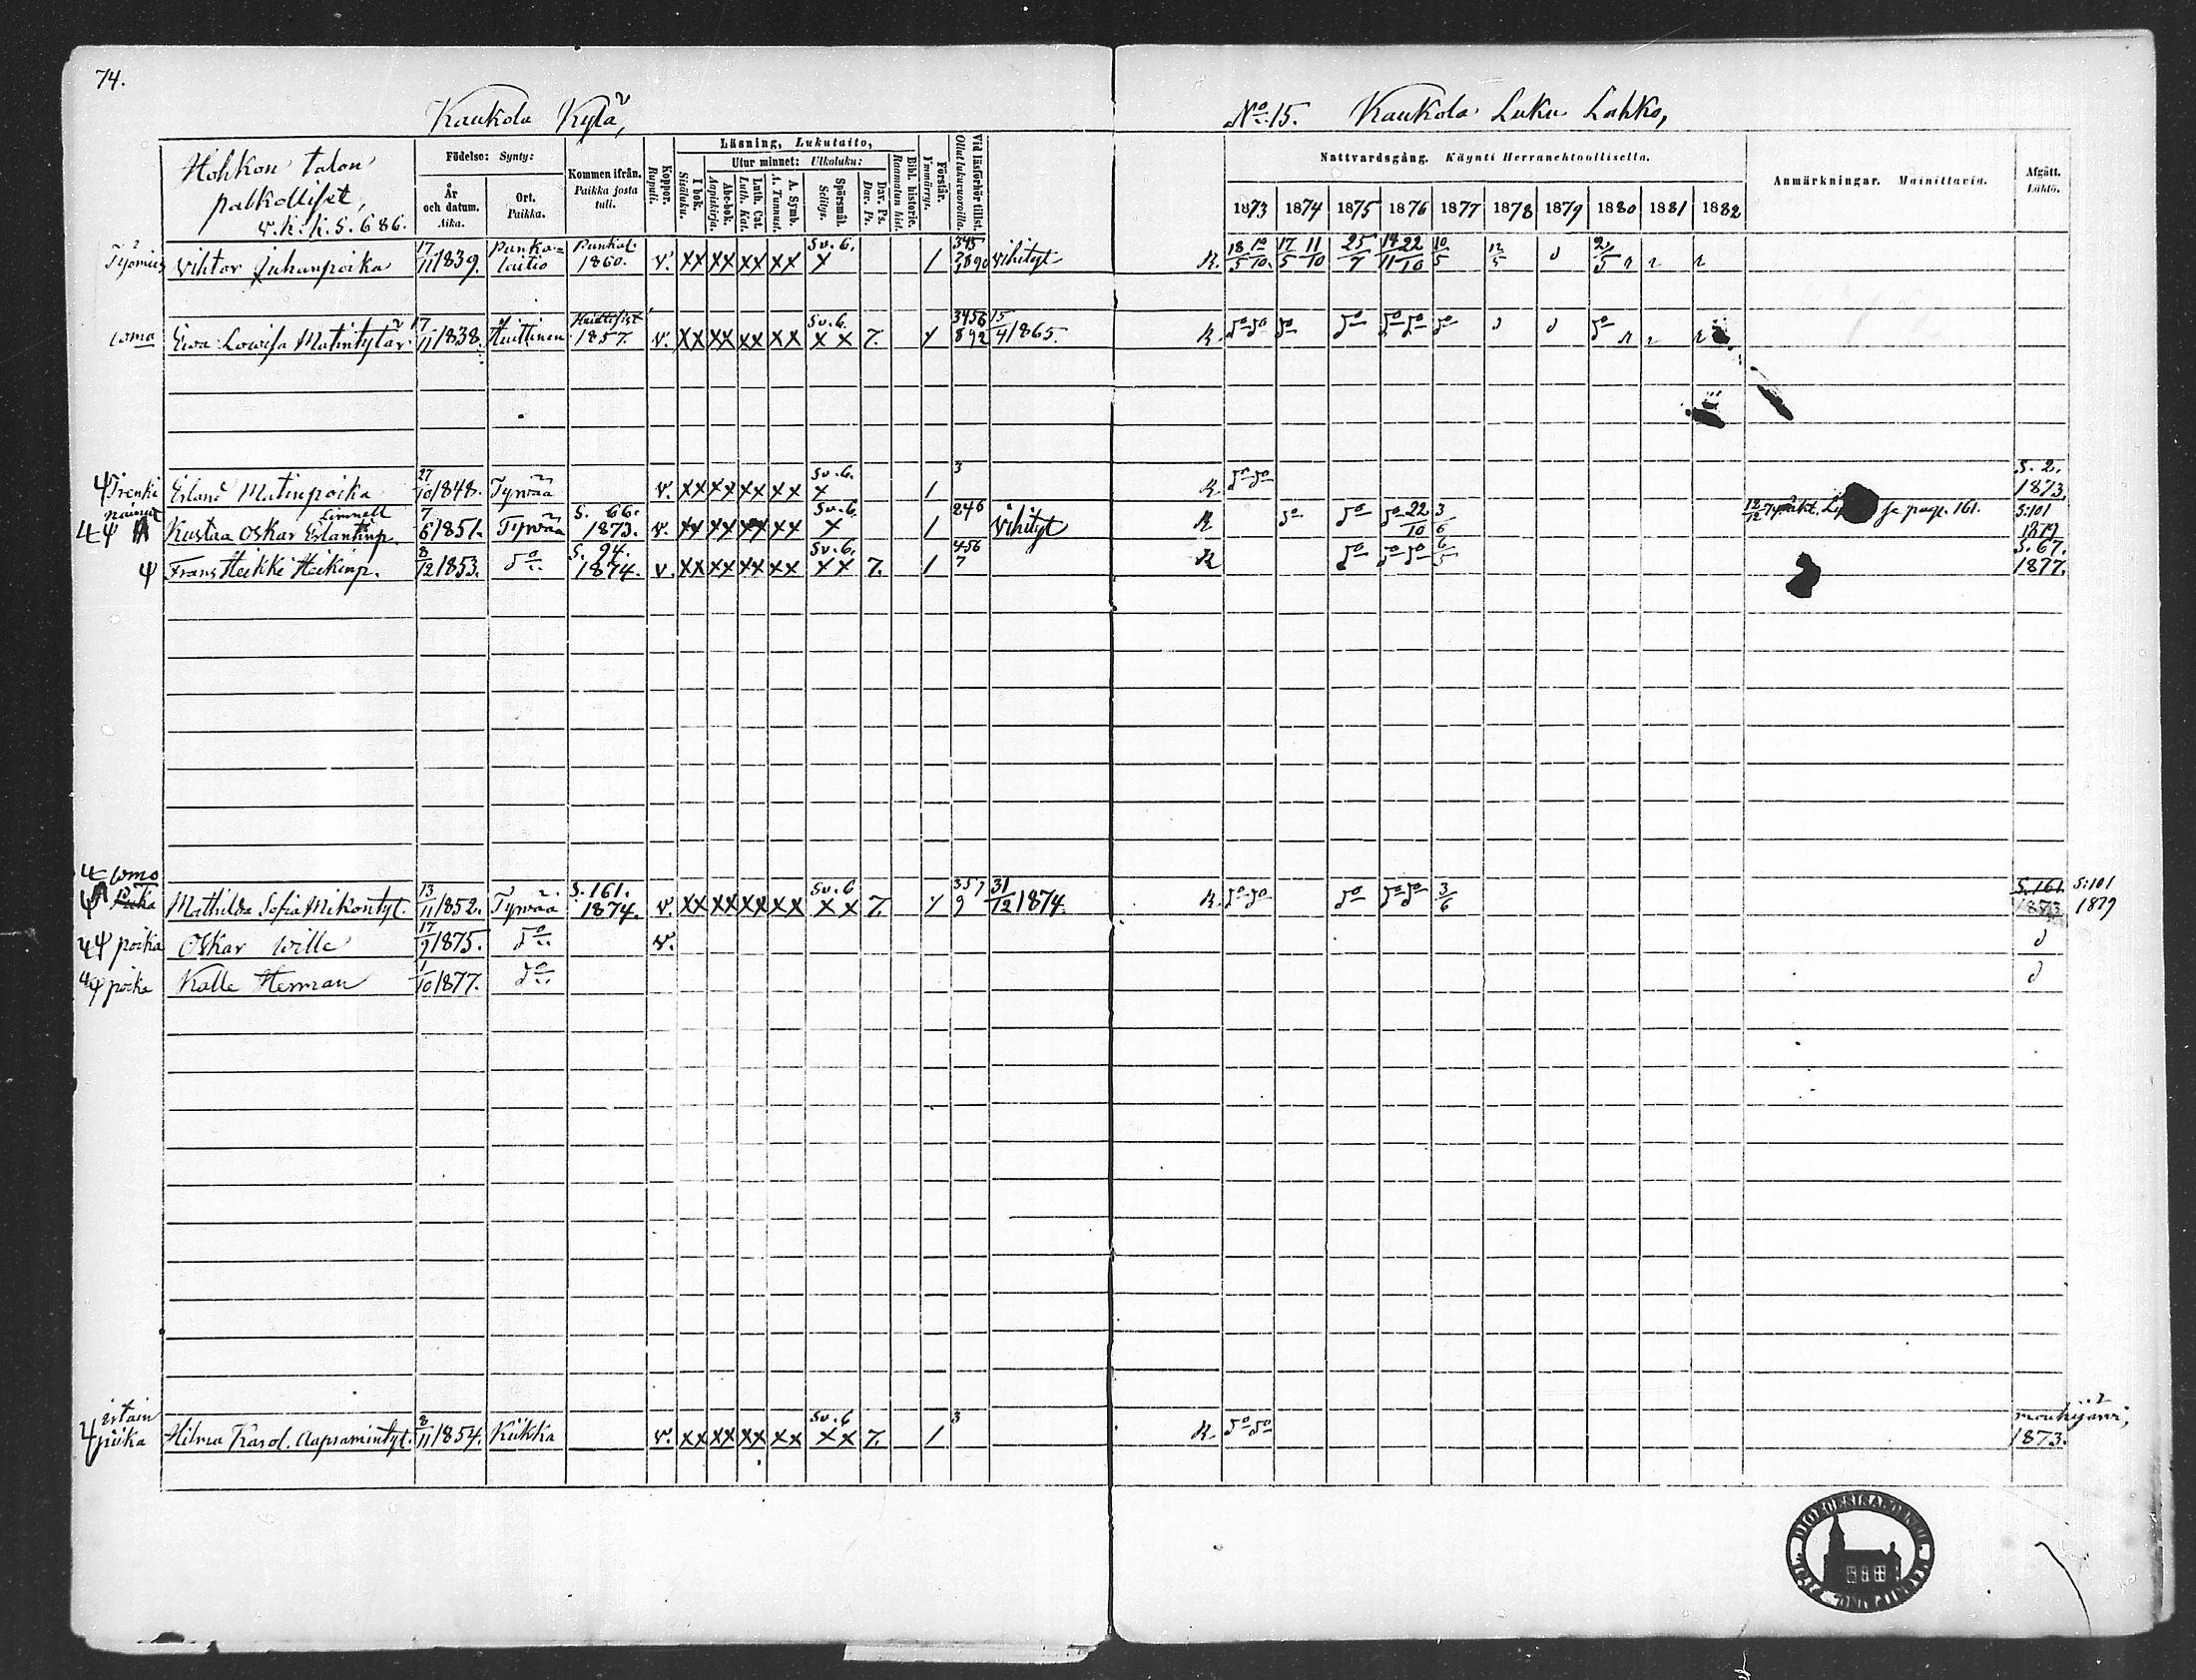 74.
Kaukola Kylä,
No 15. Kaukola Luku Lahko,
Hohkon talon
palkolliset,
v. k. k. S. 686.
Födelse: Synty:
År och datum. Aika.
Ort. Paikka.
Kommen ifrån. Paikka josta tuli.
Koppor. Rupuli.
Läsning, Lukutaito,
I bok. Sisäluku.
Utur minnet: Ulkoluku:
Abc-bok. Aapiskirja.
Luth. Cat. Luth. Kat.
A. Symb. A. Tunnust.
Spörsmål. Selitys.
Dav. Ps. Dav. Ps.
Bibl. historie. Raamatun hist.
Förstår. Ymmärrys.
Vid läsförhör tillst. Ollut lukuvuoroilla.
Nattvardsgång. Käynti Herranehtoollisella.
1873 1874 1875 1876 1877 1878 1879 1880 1881 1882
Anmärkningar. Mainittavia.
Afgått. Lähtö.
Työmies Vihtor Juhanpoika 17/11 1839. Punkalaitio Punkal. 1860. v. xx xx xx xx Sv. 6. x / 345 vihityt R. 18/5 10/10. 17/5 11/10 25/7 19/11 22/10 10/5 12/5 2/5
woma Ewa Lowisa Matintytär 17/11 1838. Huittinen 1857. v. xx xx xx xx Sv. 6. x x 7. 3456 892 15/4 1865. R. do do do do do do do do
Trenki Erland Matinpoika 27/10 1848. Tyrvää v. xx xx xx xx Sv. 6. x / 3 R do do S. 2. 1873.
nainut Kustaa Oskar Erlantinp. Linnell 7/6 1851. Tyrvää S. 66. 1873. v. xx xx xx xx Sv. 6. x / 246 vihityt R do do do 22/10 3/6 12/12 ja pag. 161. S:101 1879
Frans Heikki Heikinp. 8/12 1853. do S. 94. 1874. v. xx xx xx xx Sv. 6. x x 7. / 456 7 R do do do 6/5 S. 67. 1877.
womo Piika Mathilda Sofia Mikontyt. 13/11 1852. Tyrvää S. 161. 1874. v. xx xx xx xx Sv. 6 x x 7. 357 9 31/12 1874. R. do do do do do 3/6 S. 161. 1873 S:101 1879
poika Oskar Wille 17/9 1875. do v.
poika Kalle Herman 1/10 1877. do
istain piika Hilma Karol. Aapramintyt. 8/11 1854. Kiikka v. xx xx xx xx Sv. 6 x x 7. / 3 R. do do mouhijärvi, 1873.